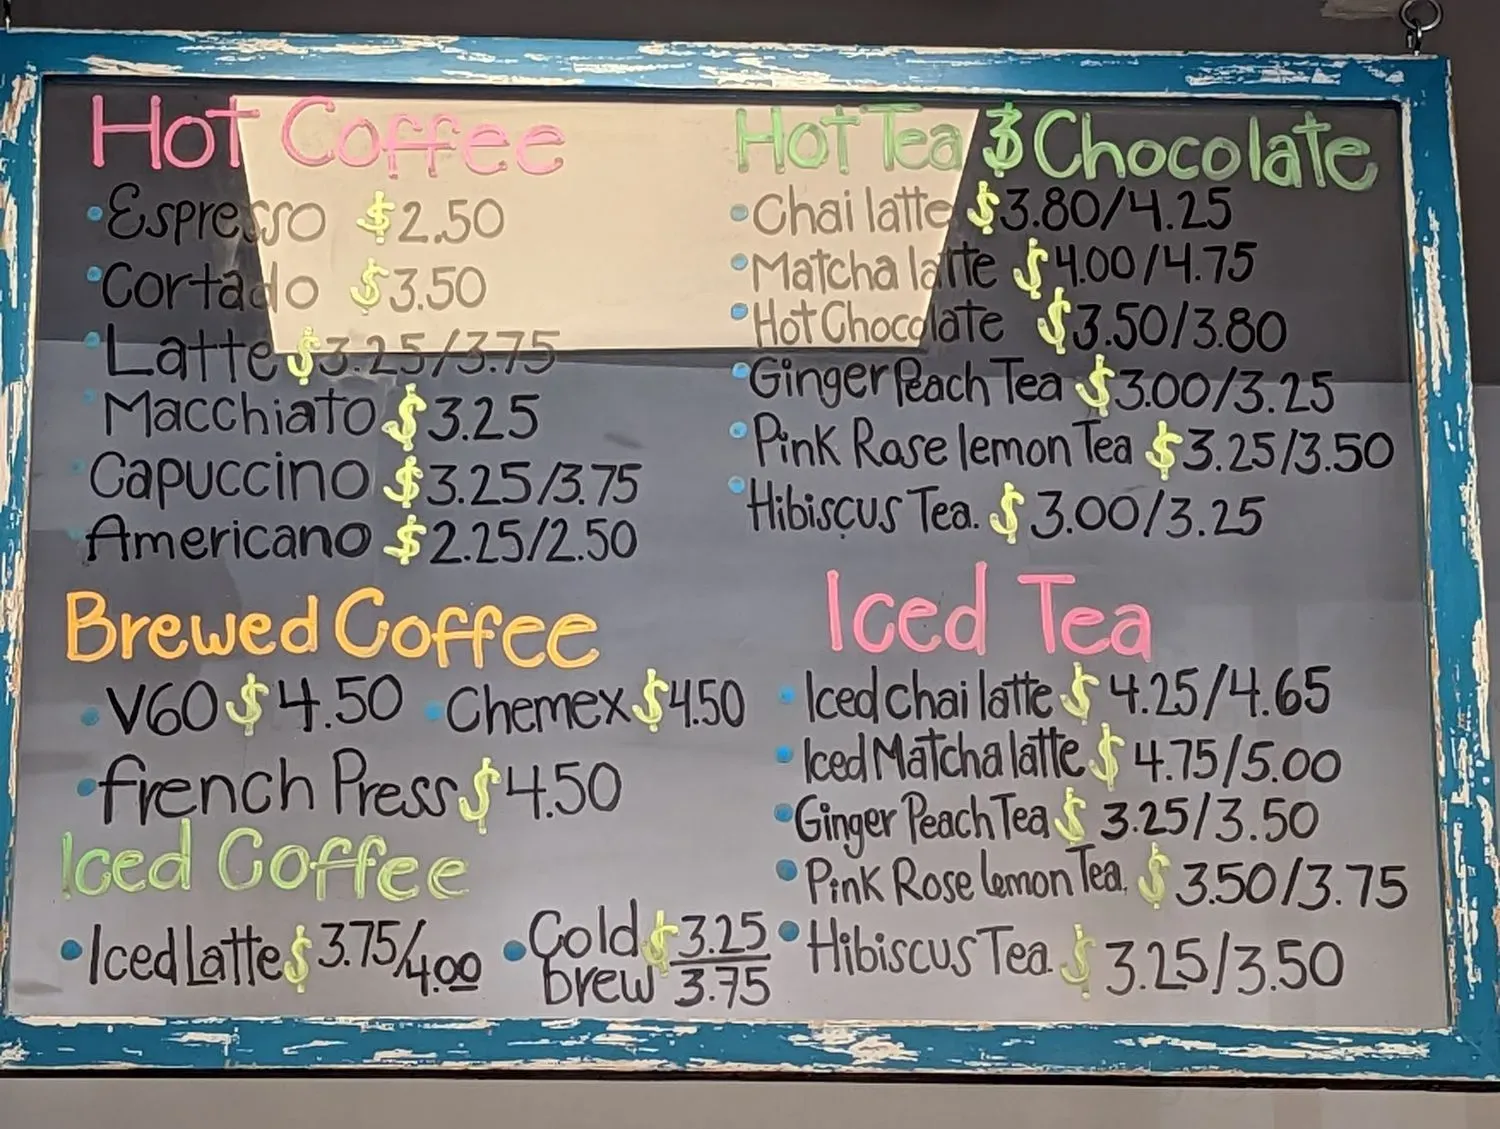 Hot Coffee
•Espresso $2.50
•Cortado $3.50
•Latte $3.25/3.75
•Macchiato $3.25
•Capuccino $3.25/3.75
•Americano $2.25/2.50
Brewed Coffee
•V60 $4.50 •Chemex $4.50
•french Press $4.50
Iced Coffee
•Iced Latte $3.75/4.00 •Cold brew $3.25/3.75
Hot Tea $ Chocolate
•Chai latte $3.80/4.25
•Matcha latte $4.00/4.75
•Hot Chocolate $3.50/3.80
•Ginger Peach Tea $3.00/3.25
•Pink Rose lemon Tea $3.25/3.50
•Hibiscus Tea. $3.00/3.25
Iced Tea
•Iced chai latte $4.25/4.65
•Iced Matcha latte $4.75/5.00
•Ginger Peach Tea $3.25/3.50
•Pink Rose lemon Tea. $3.50/3.75
•Hibiscus Tea. $3.25/3.50